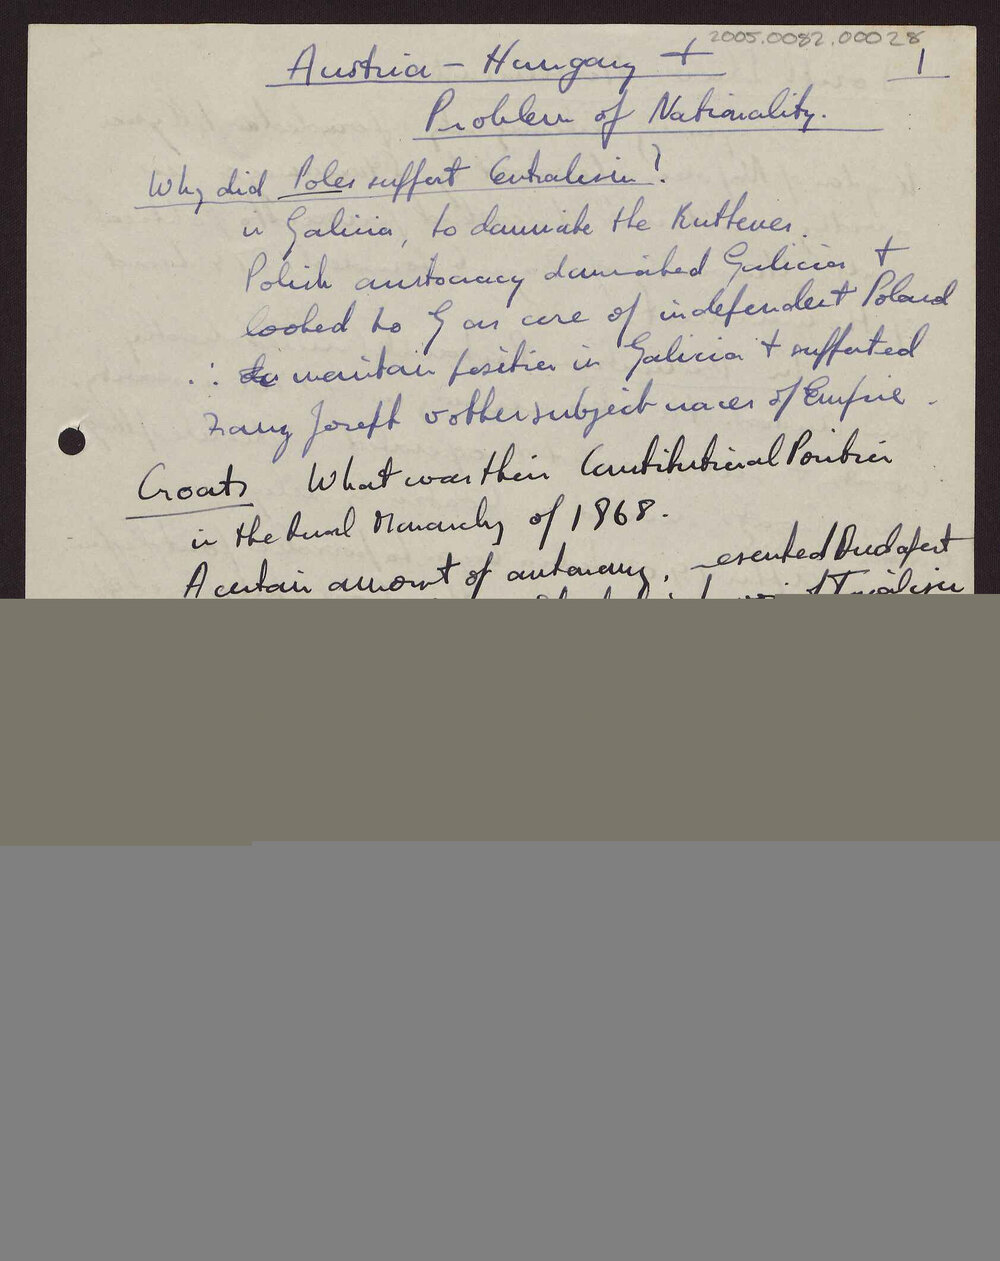 2005.0082.00028
Austria - Hungary + 1
Problem of Nationality.
Why did Poles support Centralism?
in Galicia, to dominate the Ruthenes.
Polish aristocracy dominated Galicia +
looked to G as core of independent Poland
∴ to maintain position in Galicia + supported
Franz Joseph v other subject races of Empire.
Croats What was their Constitutional Position
in the Dual Monarchy of 1868.
A certain amount of autonomy, resented Budapest
of Trialism